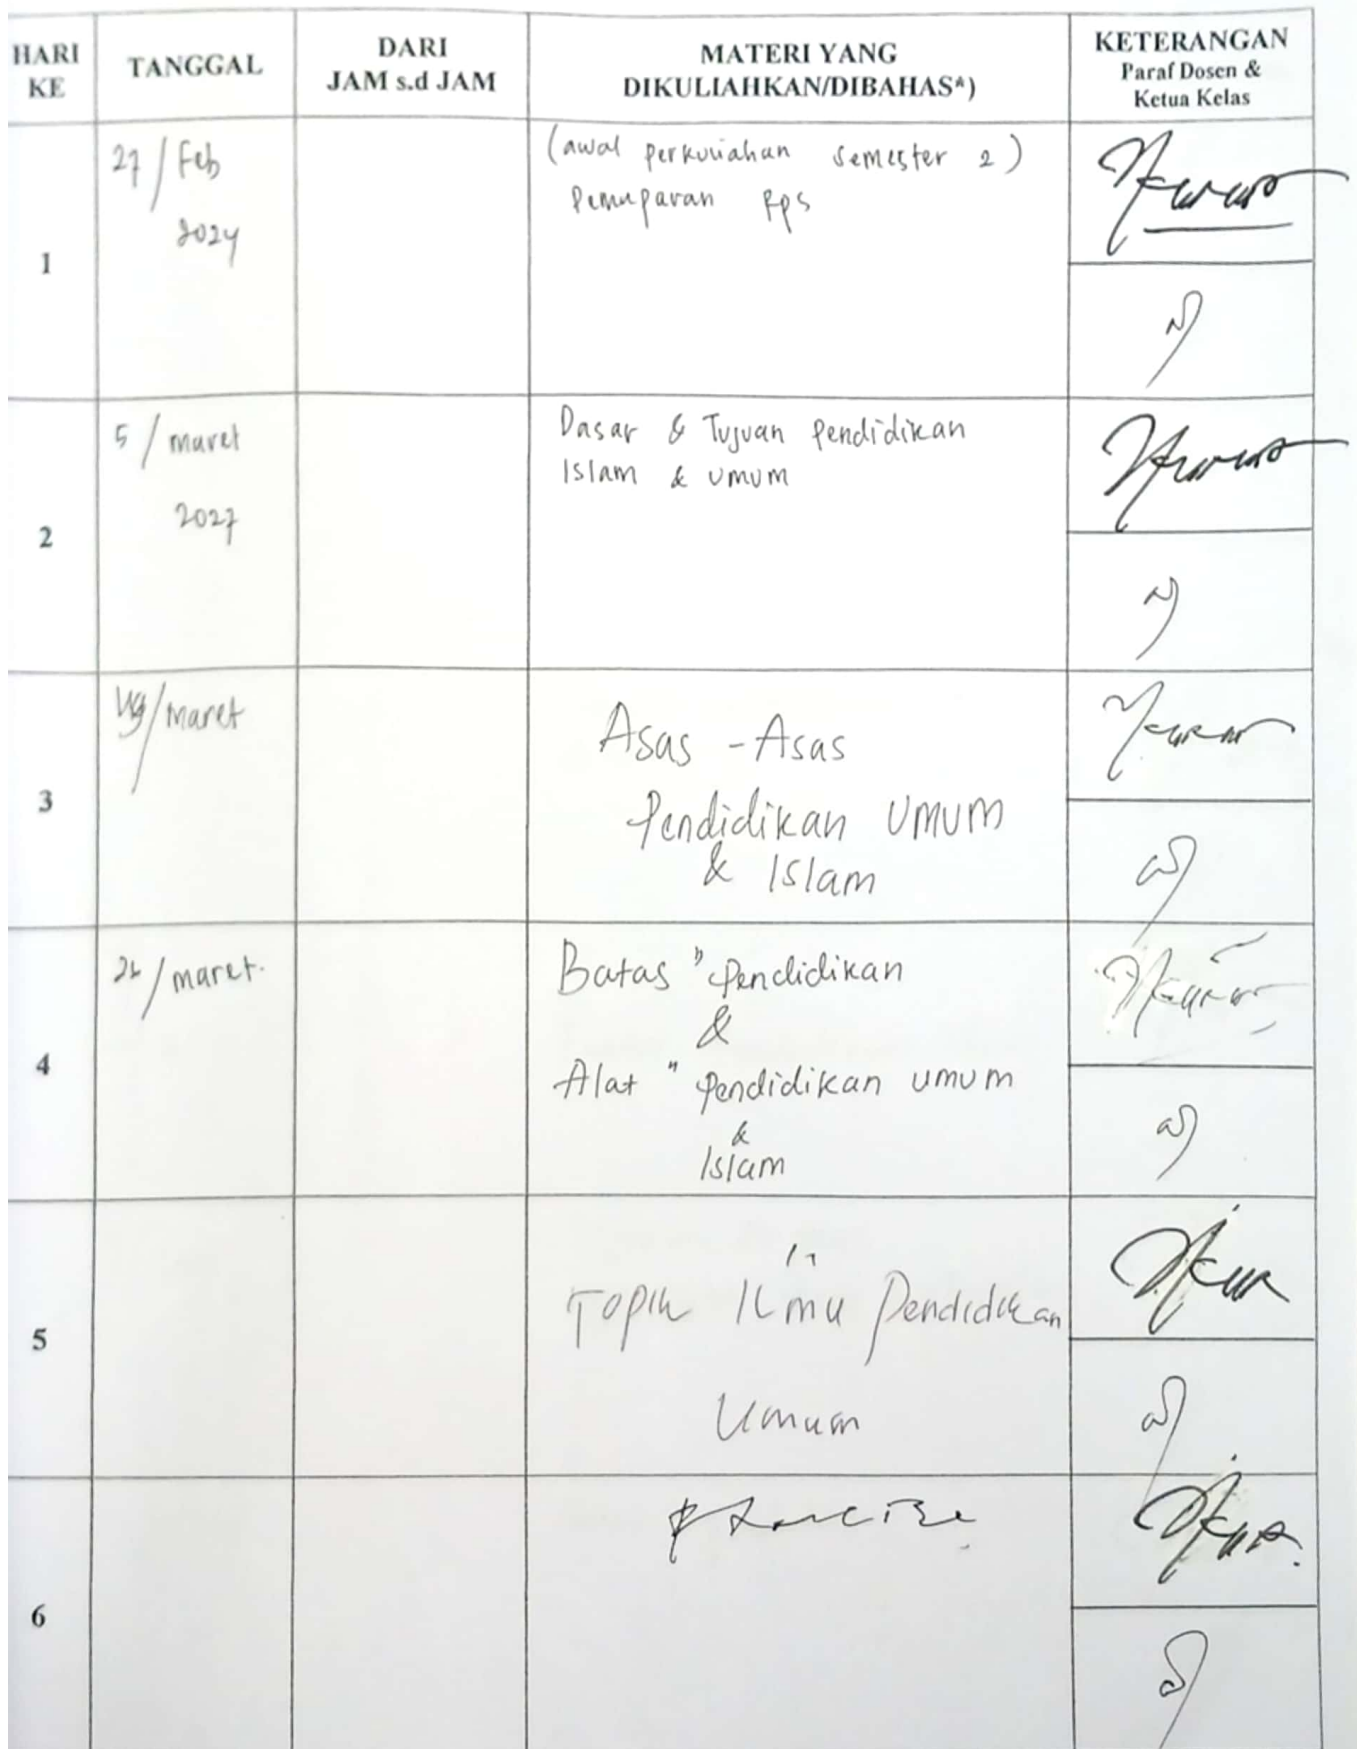 HARI KE
TANGGAL
DARI
JAM s.d JAM
MATERI YANG
DIKULIAHKAN/DIBAHAS*)
KETERANGAN
Paraf Dosen &
Ketua Kelas
1
27 / Feb
2024
(awal perkuliahan semester 2)
Pemaparan Rps
2
5 / maret
2027
Dasar & Tujuan Pendidikan
Islam & umum
3
/ maret
Asas - Asas
Pendidikan Umum
& Islam
4
26 / maret.
Batas " Pendidikan
&
Alat " Pendidikan umum
&
Islam
5
Topik Ilmu Pendidikan
Umum
6